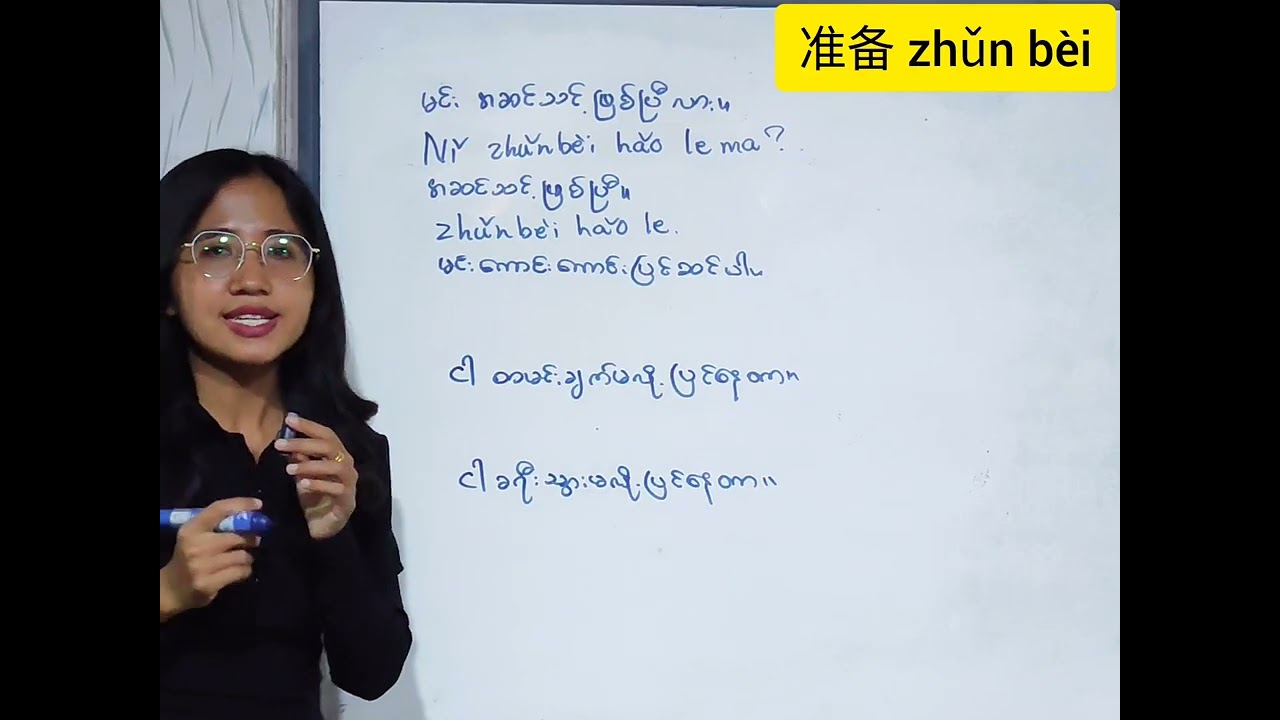 准备 zhǔn bèi
မင်း အဆင်သင့်ဖြစ်ပြီလား။
Nǐ zhǔnbèi hǎo le ma?
အဆင်သင့်ဖြစ်ပြီ။
zhǔnbèi hǎo le.
မင်းကောင်းကောင်းပြင်ဆင်ပါ။
ငါ ထမင်းချက်ဖို့ ပြင်နေတာ။
ငါ ခရီးသွားဖို့ပြင်နေတာ။